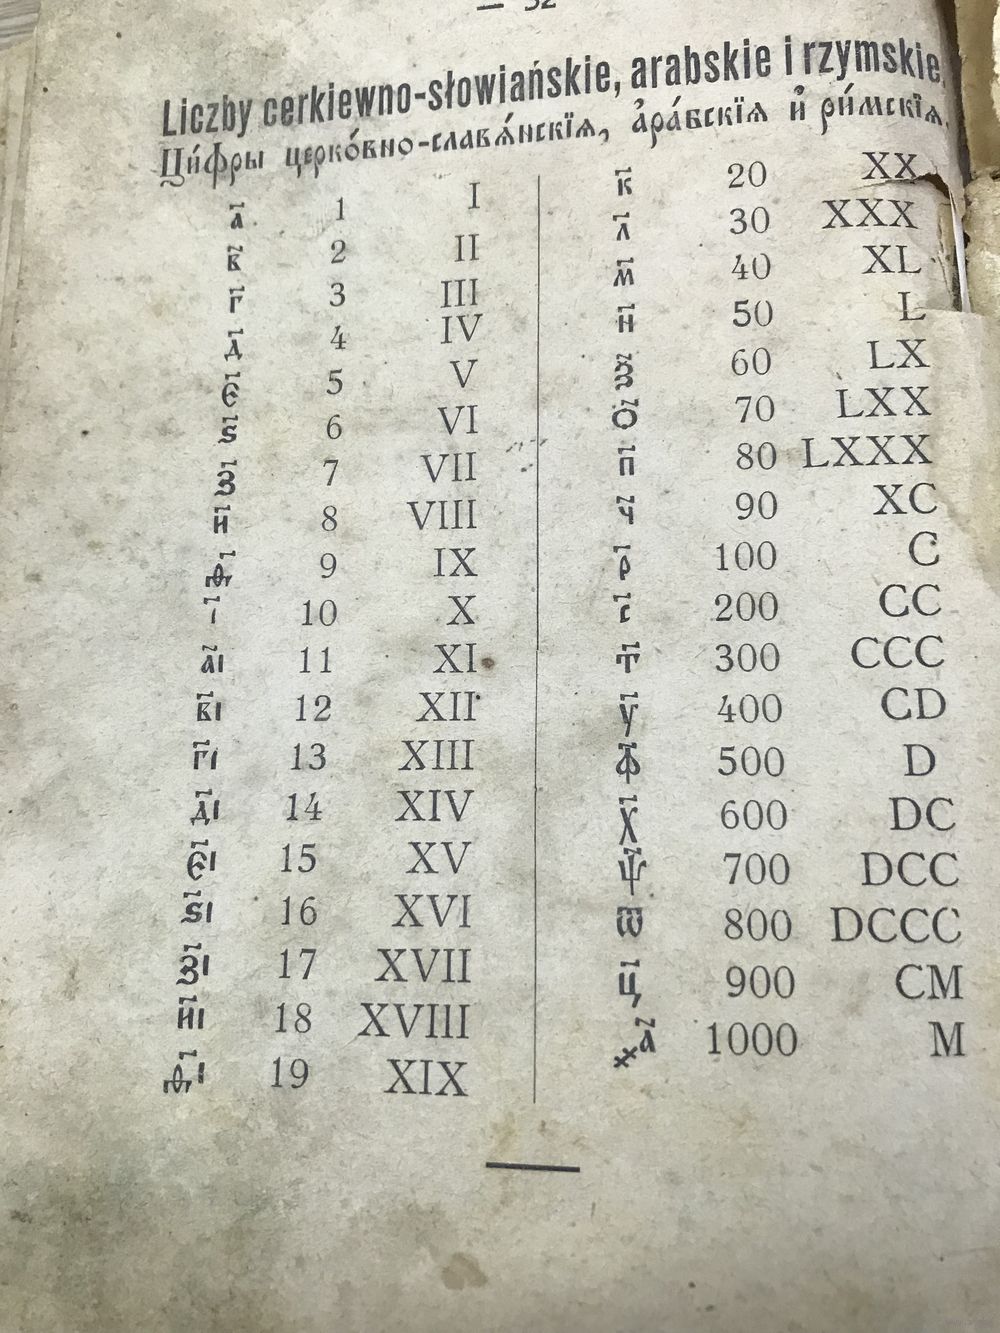 — 52
Liczby cerkiewno-słowiańskie, arabskie i rzymskie.
Ци́фры церко́вно-славѧ́нскїѧ, а҆ра́вскїѧ и҆ ри́мскїѧ.
а҃ 1 I
в҃ 2 II
г҃ 3 III
д҃ 4 IV
є҃ 5 V
ѕ҃ 6 VI
з҃ 7 VII
и҃ 8 VIII
ѳ҃ 9 IX
і҃ 10 X
а҃і 11 XI
в҃і 12 XII
г҃і 13 XIII
д҃і 14 XIV
є҃і 15 XV
ѕ҃і 16 XVI
з҃і 17 XVII
и҃і 18 XVIII
ѳ҃і 19 XIX
к҃ 20 XX
л҃ 30 XXX
м҃ 40 XL
н҃ 50 L
ѯ҃ 60 LX
о҃ 70 LXX
п҃ 80 LXXX
ч҃ 90 XC
р҃ 100 C
с҃ 200 CC
т҃ 300 CCC
у҃ 400 CD
ф҃ 500 D
х҃ 600 DC
ѱ҃ 700 DCC
ѿ҃ 800 DCCC
ц҃ 900 CM
҂а҃ 1000 M